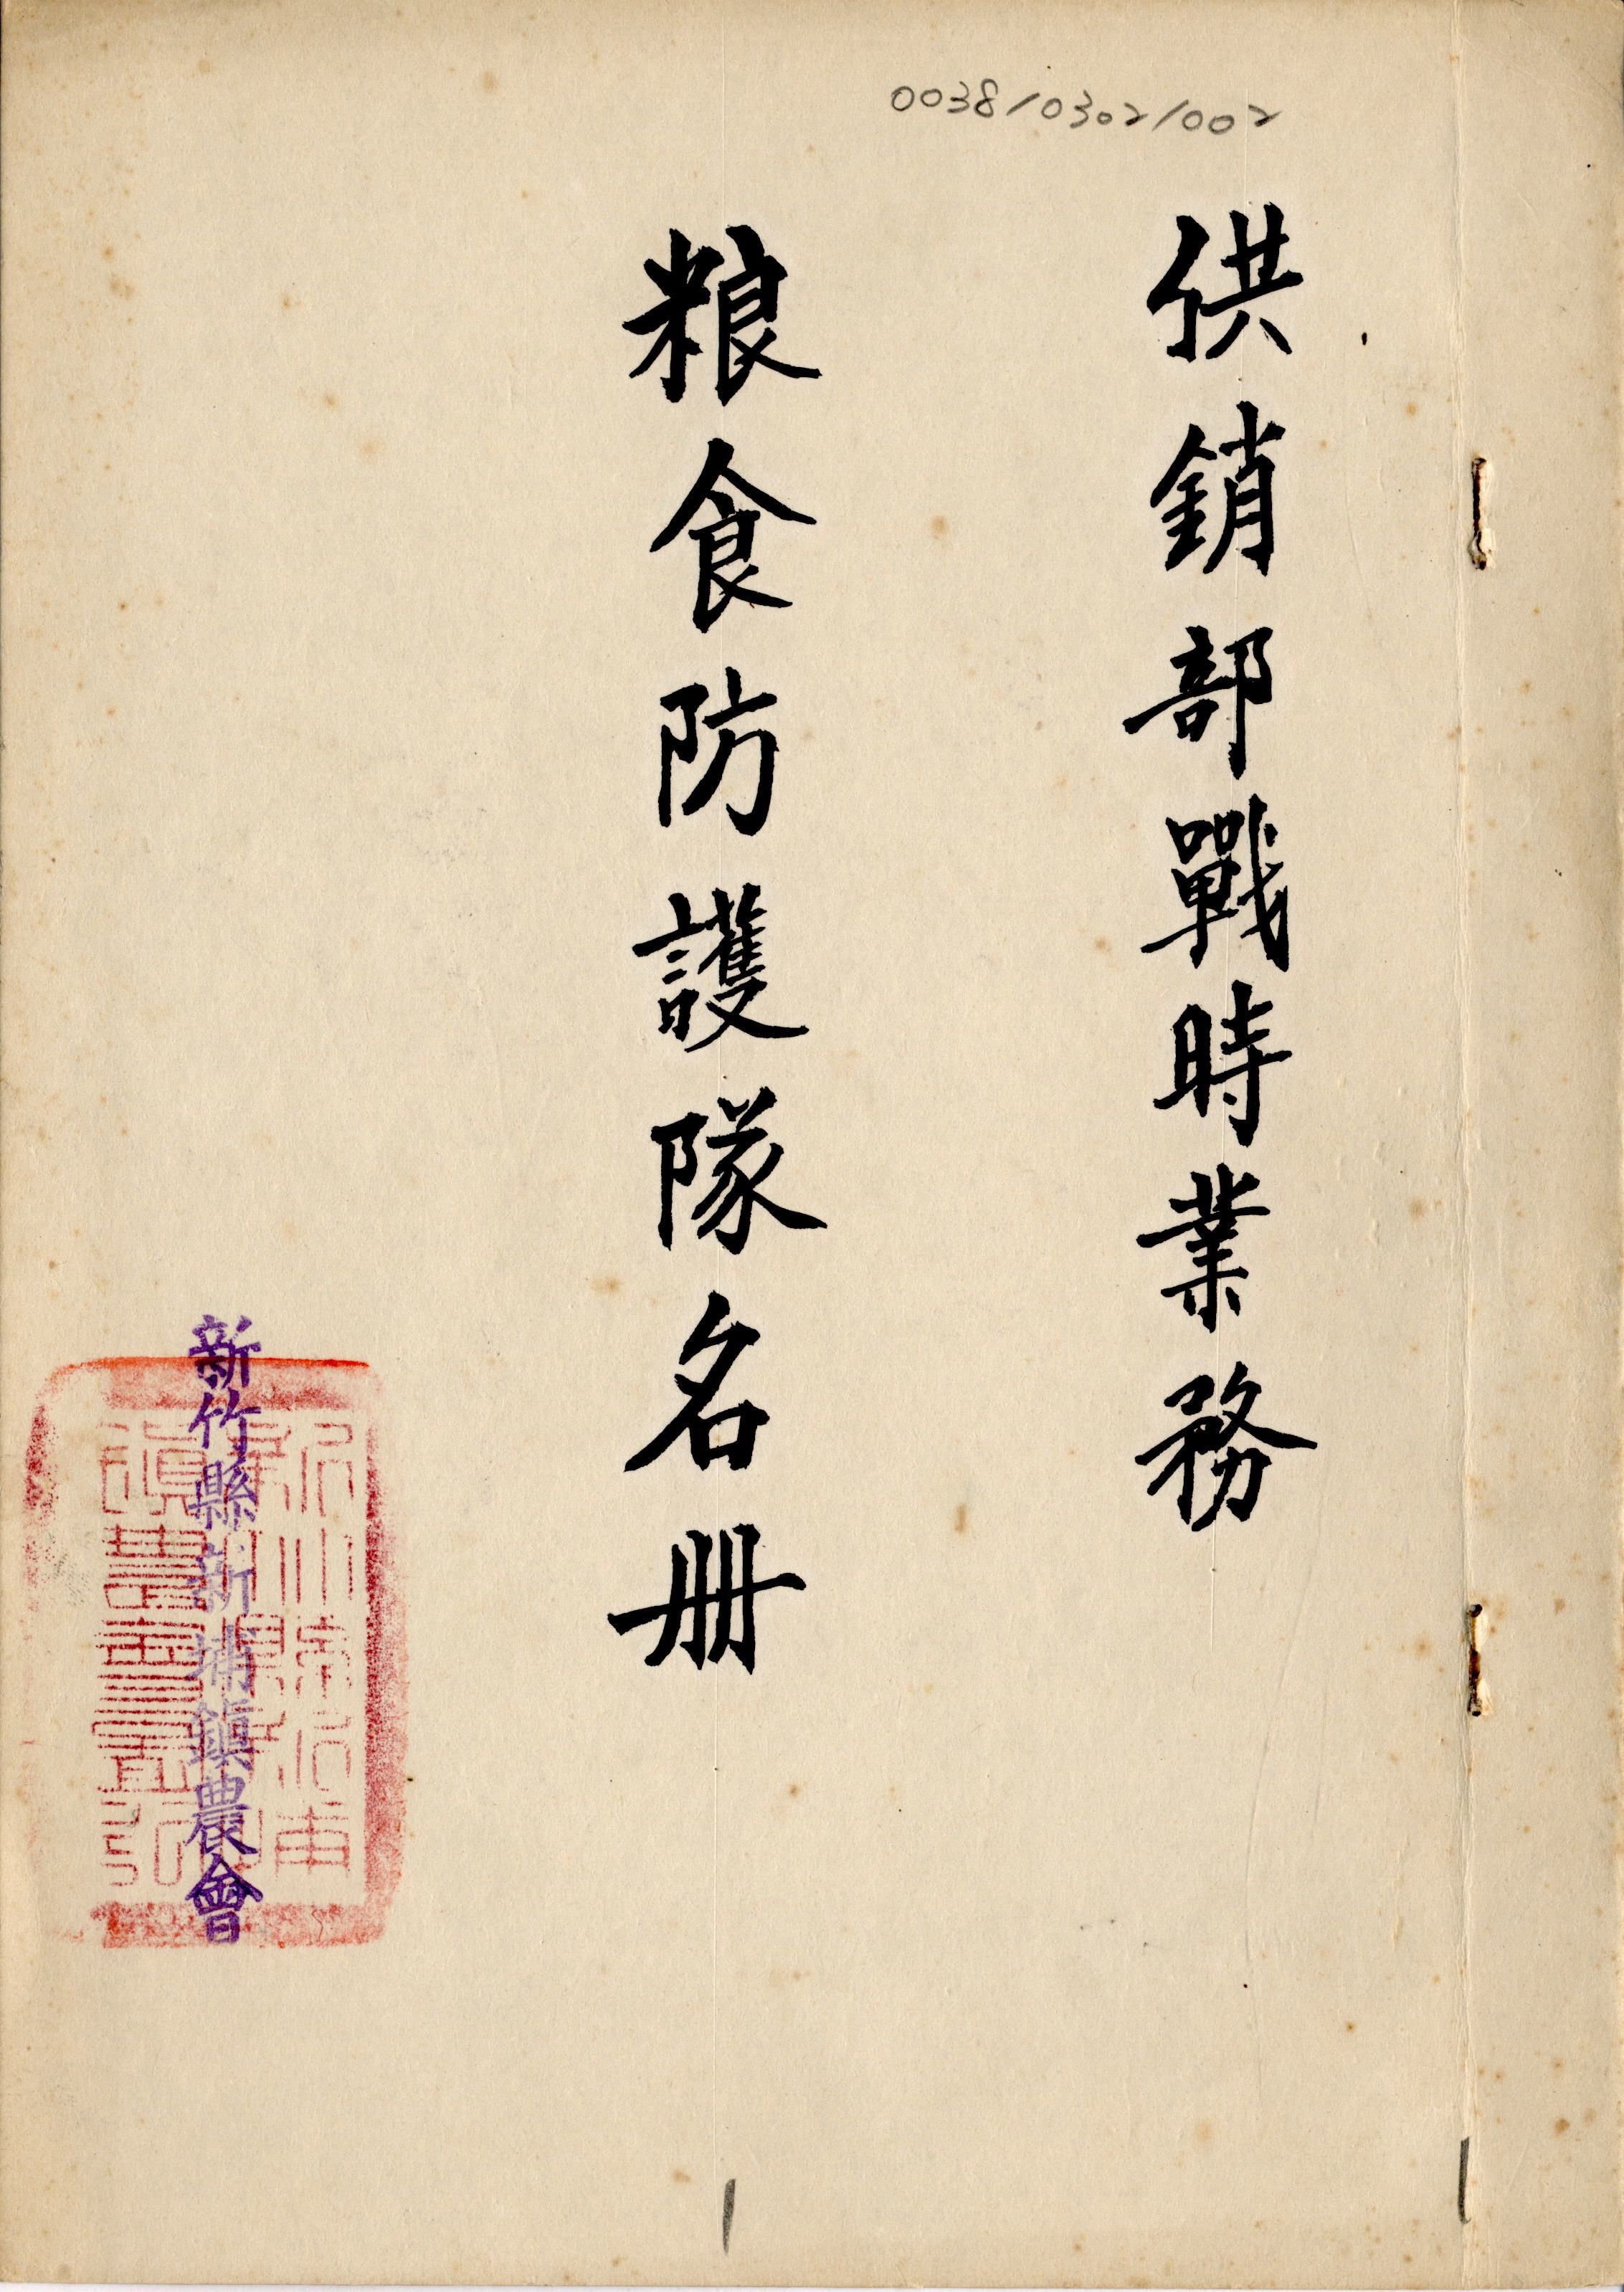 0038/0302/002
供銷部戰時業務
粮食防護隊名册
新竹縣新埔鎮農會
1
1